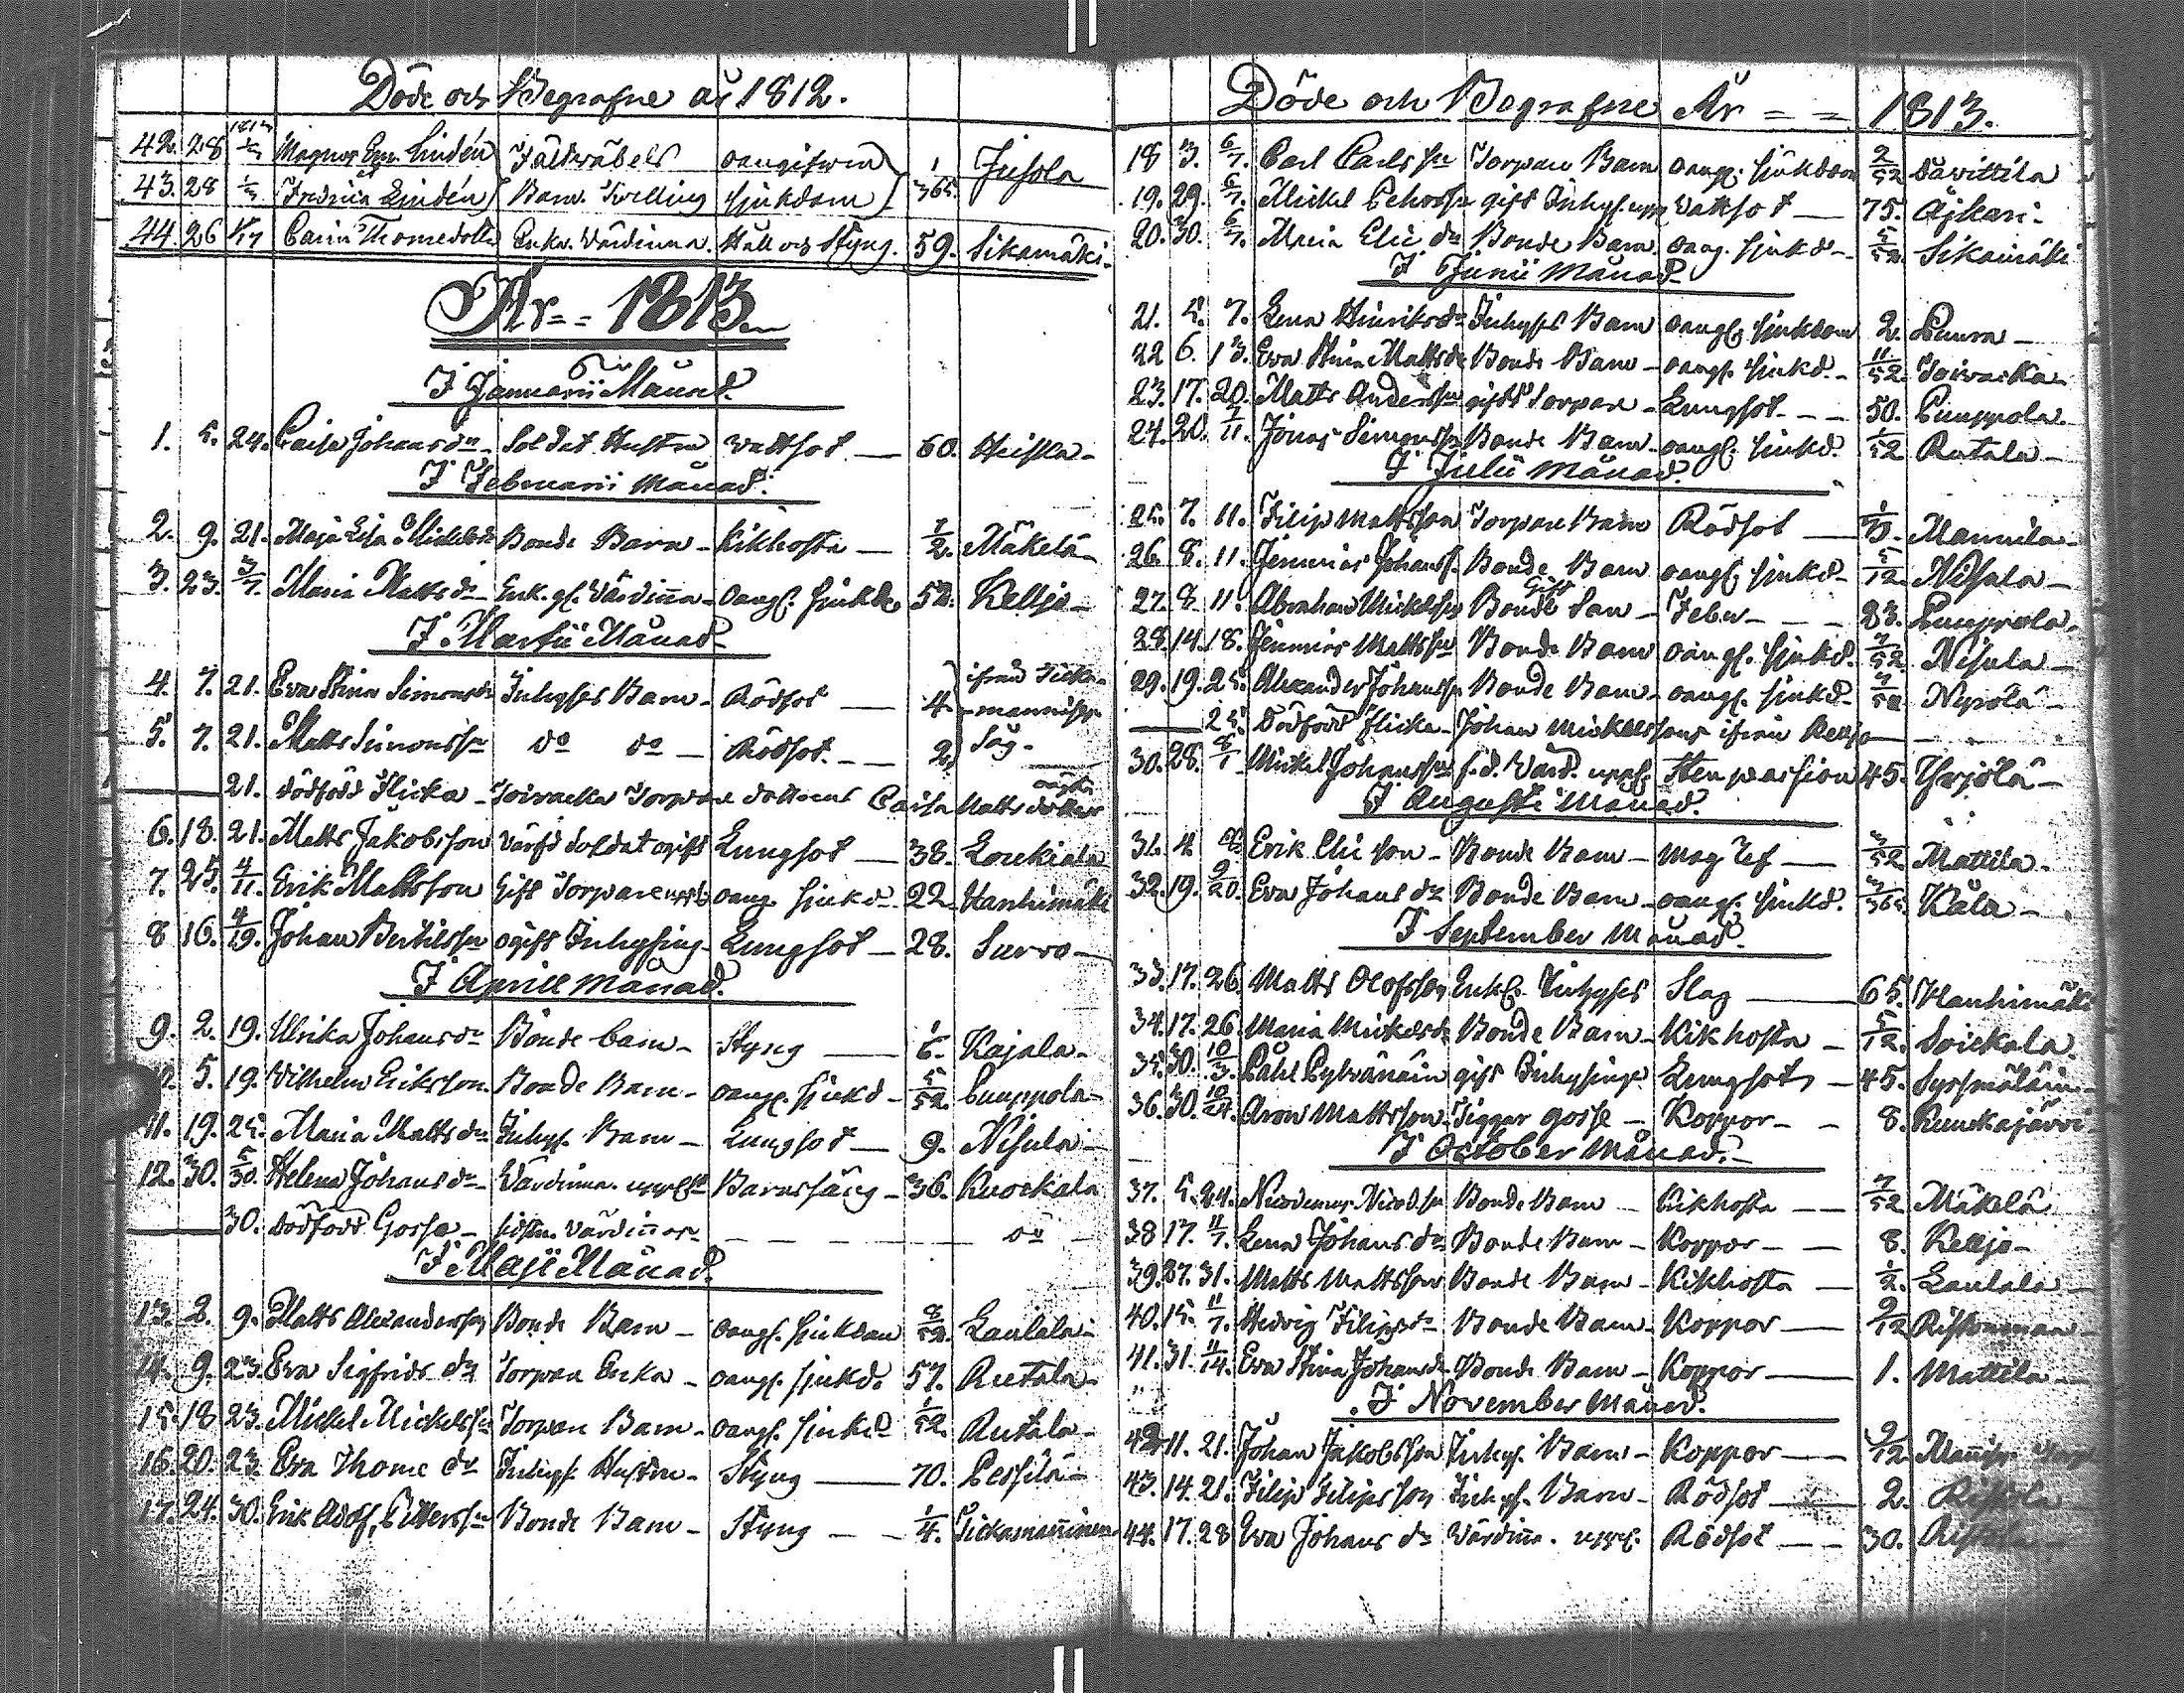 Döde och Begrafne år 1812.
42. 28 1813 Magnus Lindén Fältväbels oangifwen 1/365 Jusola
43. 28 Fredrica Lindén Barn. Twilling sjukdom
44. 26 1/17 Carin Thomedotter Enka. Värdinna. Håll och Styng. 59. Sikamäki.
År = = 1813.
I Januarii Månad.
1. 5. 24. Caisa Johansdr Soldat Hustru wattsot — 60. Heiska
I Februarii Månad.
2. 9. 21. Maja Lisa Mickelsdr Bonde Barn - Kikhosta — 1/2. Mäkelä
3. 23. 3/7. Maria Mattsdr Enk. gl. Värdinna - oangf. sjukd. 52. Kelljo -
I Martii Månad
4. 7. 21. Eva Stina Simonsdr Inhyses Barn - Rödsot — 4. ifrån
5. 7. 21. Matts Simonsson do do - Rödsot. — 2.
— 21. dödfödd Flicka - Torpare dottrens Caisa Mattsdotter
6. 18. 21. Matts Jakobsson Soldat ogift Lungsot — 38. Loukiala
7. 25. 4/11. Erik Mattsson Gift Torpare oang. sjukd. 22. Hanhimäki
8 16. 4/19. Johan Bertilsson ogift Inhysing - Lungsot — 28. Survo —
I Aprill Månad.
9. 2. 19. Ulrika Johansdr Bonde barn - Styng — 1/6. Kajala -
5. 19. Vilhelm Eriksson. Bonde Barn - oangf. sjukd - 5/52. Puuppola
11. 19. 25. Maria Mattsdr Inhys. Barn - Lungsot — 9. Nisula
12. 30. 5/30. Helena Johansdr - Värdinna Barnsäng - 36. Ruokala
— 30. Dödfödd Gosse - Värdinnor do
I Maji Månad.
13. 2. 9. Matts Alexandersson Bonde Barn - oangf. sjukdom 8/52. Laulala
14. 9. 23. Eva Sigfridsdr Torpare Enka - oangf. sjukd. 57. Rutala
15. 18 23. Mickel Mickelsson Torpare Barn - oangf. sjukd 1/52. Rutala -
16. 20. 23. Eva Thomedr Inhys. Hustru - Styng — 70. Pessilä
17. 24. 30. Erik Adolf Pettersson Bonde Barn - Styng — 1/4. Tickamanninen
Döde och Begrafne År = = 1813.
18 3. 6/7. Carl Carlsson Torpare Barn oangf. sjukdom 2/52 Davittila
19. 29. 6/7. Mickel Pehrsson gift Inhys. Wattsot — 75. Äjkäri.
20. 30. 6/7. Maria Elie dr Bonde Barn. oang. sjukd - 5/52 Sikamäki
I Junii Månad
21. 5. 7. Lena Hinriksdr Inhyses Barn oangf. sjukdom 2. Ruura -
22 6. 13. Eva Stina Mattsdr Bonde Barn - oangf. sjukd. - 11/52 Toivacka
23. 17. 20. Matts Andersson gift Torpare - Lungsot - - 50. Puuppola.
24. 20. 7/11. Jonas Simonsson Bonde Barn. oangf. sjukd. 1/52 Rutala -
I Julii Månad.
25. 7. 11. Filip Mattsson Torpare Barn Rödsot — Mannila
26. 8. 11. Jeremias Johanss. Bonde Barn oangf. sjukd - 5/12. Nisula -
27. 8 11. Abraham Mickelsson Gift Bonde Son - Feber - - - 23. Puuppola.
28. 14. 18. Jeremias Mattsson Bonde Barn oangf. sjukd. 7/52 Nisula -
29. 19. 25. Alexander Johansson Bonde Barn - oangf. sjukd - 7/52 Nypölä -
— 25. dödfödd flicka - Johan Mickelssons ifrån Kelljo
30. 28. 8/1 Mickel Johansson f.d. Värd. Stenpassion 45. Yrjölä -
I Augusti Månad.
31. 4 Erik Elie son - Bonde Barn - Mag — 3/52 Mattila -
32. 19. 9/20. Eva Johansdr Bonde Barn - oangf. sjukd. 3/365. Kåla -
I September Månad.
33. 17. 26. Matts Olofsson Enkl. Inhyses Slag — 65. Hanhimäki
34. 17. 26. Maria Mickelsdr Bonde Barn - Kikhosta - 5/12. Soickala
35. 30. 10/3. Påhl Pylvänäin gift Inhysing Lungsot - 45.
36. 30. 10/24. Aron Mattsson. Tiggar gosse - Koppor - - 8. Ruuckajärvi
I October Månad. -
37. 5. 24. Bonde Barn - Kikhosta — 7/52 Mäkelä
38 17. 11/7. Lena Johansdr Bonde Barn - Koppor - — 8. Kelljo -
39. 27. 31. Matts Mattsson Bonde Barn - Kikhosta — 1/2. Laulala
40. 15. 11/7. Hedvig Filipsdr Bonde Barn - Koppor — 9/12
41. 31. 11/14. Eva Stina Johansdr Bonde Barn - Koppor — 1. Mattila
I November Månad.
42. 11. 21. Johan Jakobsson Inhys. Barn - Koppor — 9/12
43. 14. 21. Filip Filipsson Inhys. Barn - Rödsot — 2. Riskola
44. 17. 28 Eva Johansdr Värdinn. Rödsot — 30.